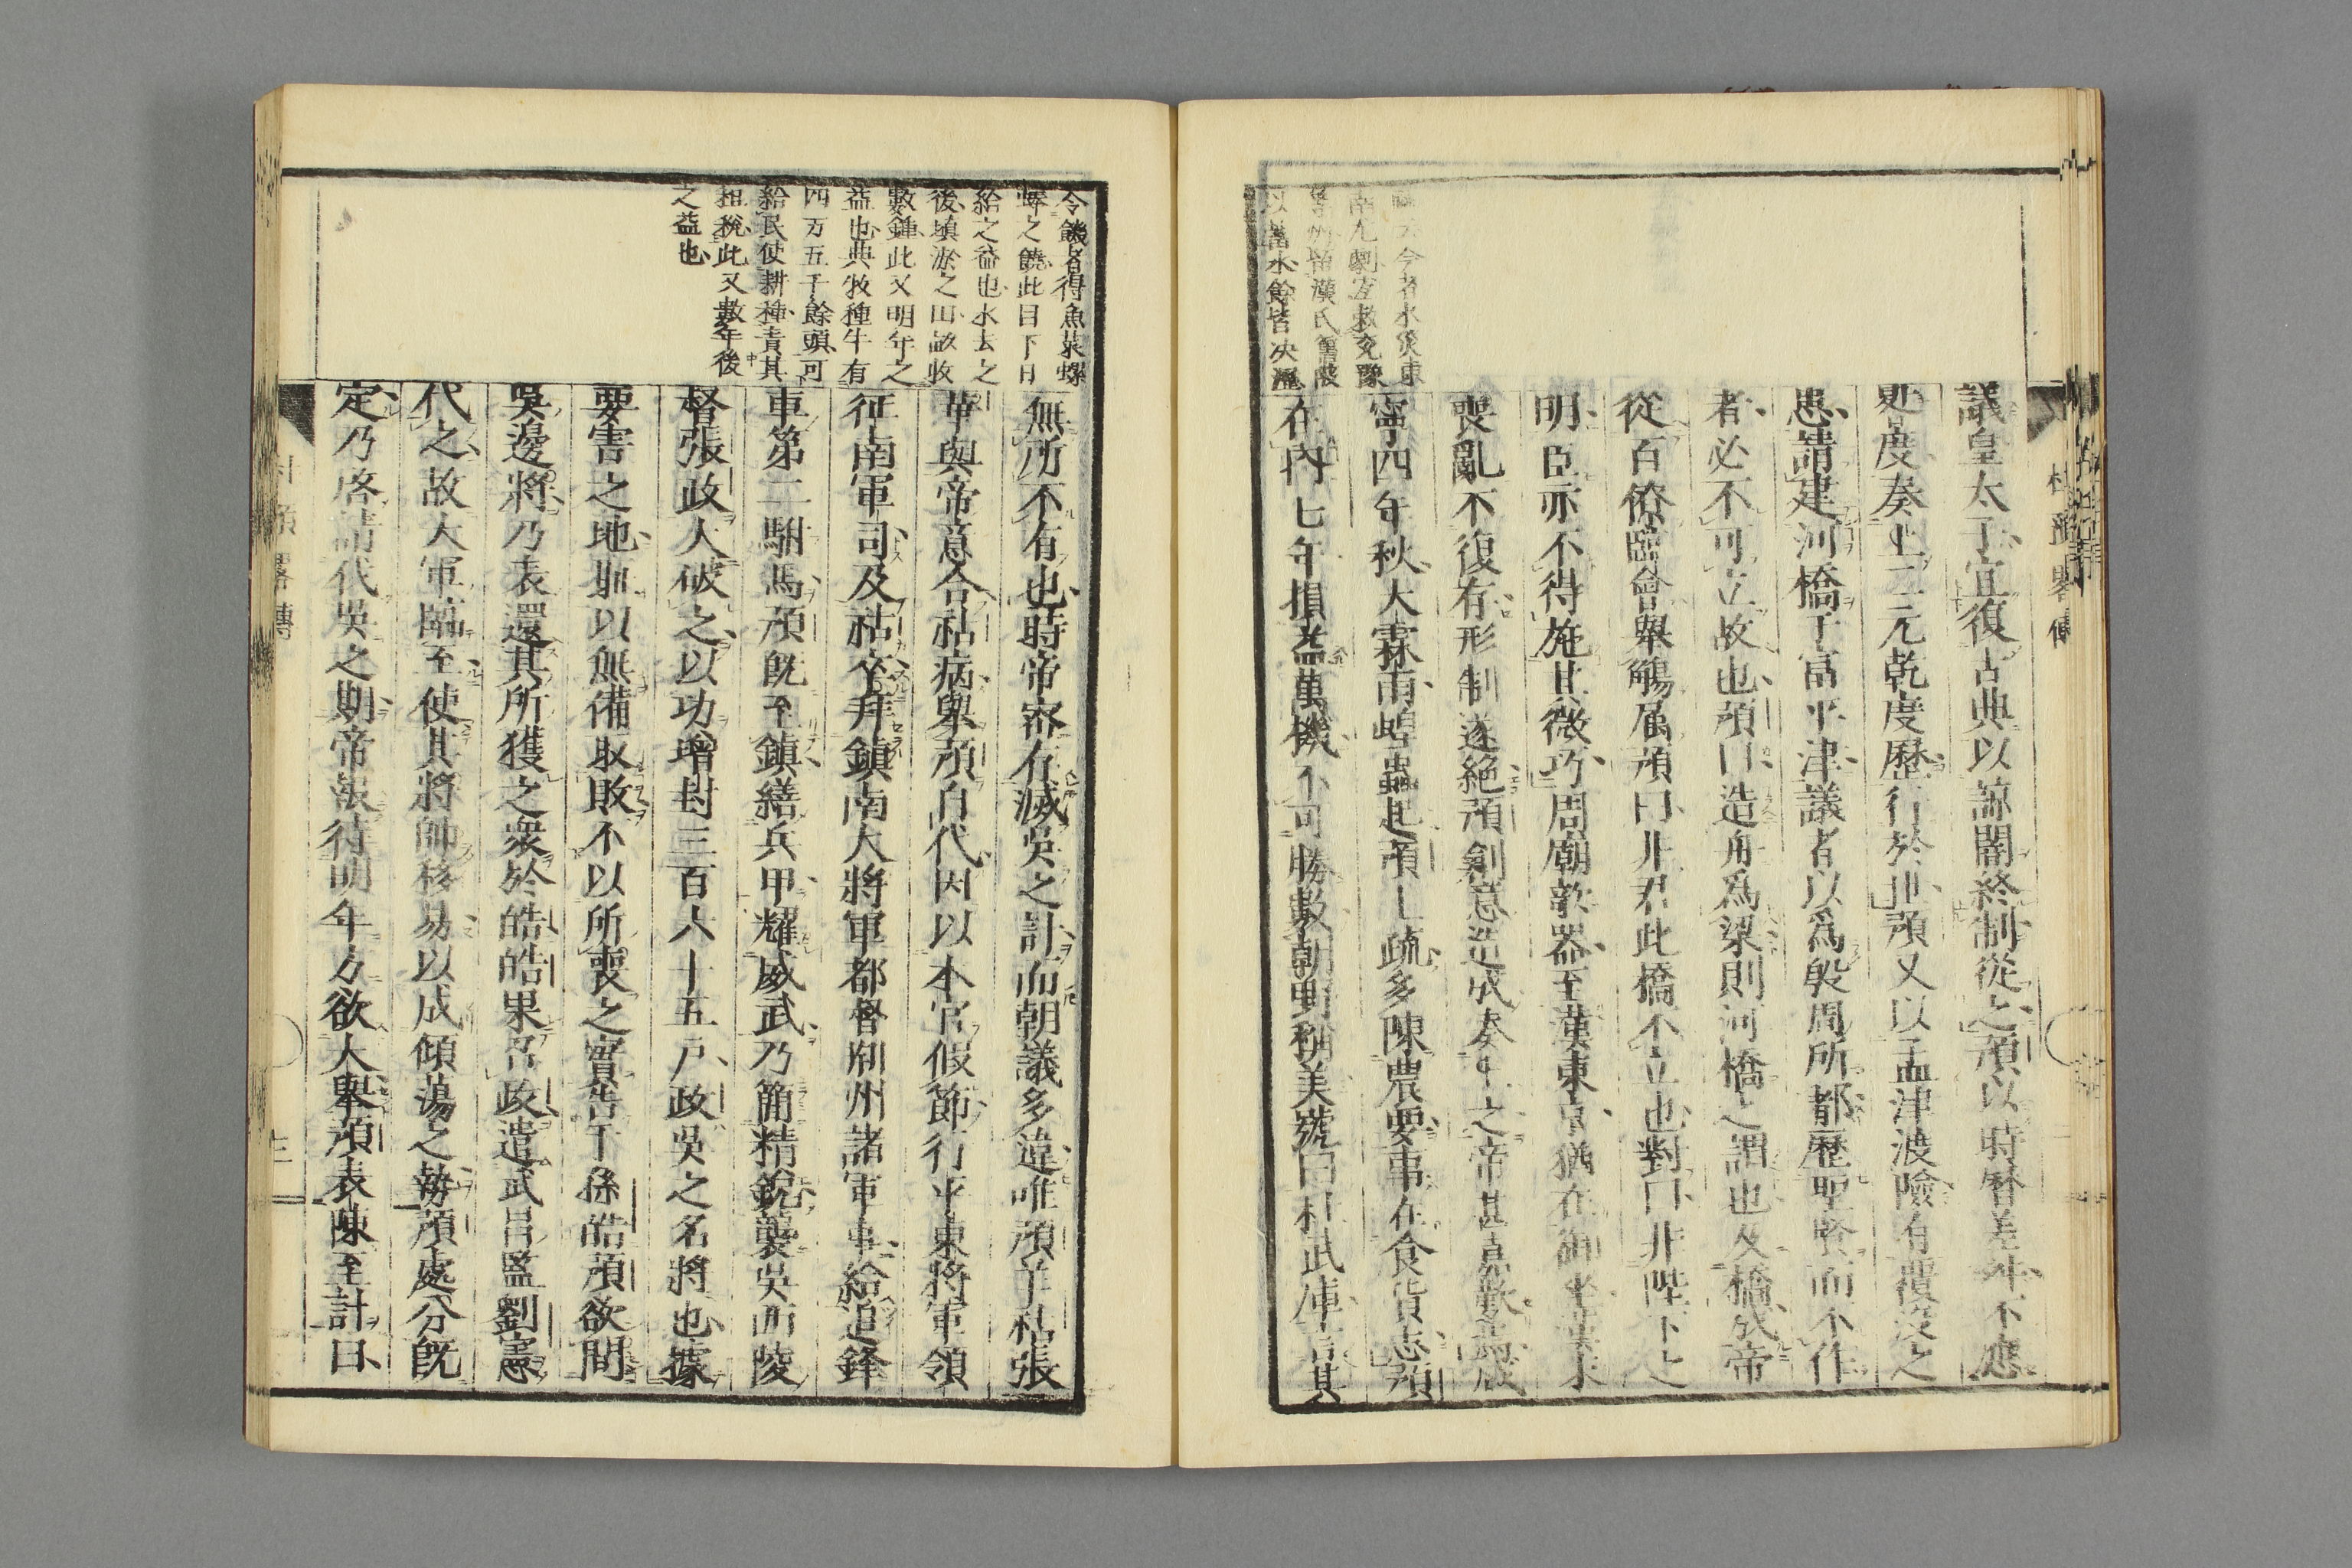 疏云今者水災東
南尤劇宜救兗豫
等州留漢氏舊陂
以蓄水餘皆决瀝
杜預畧傳
議皇太子宜復古典以諒闇終制從之預以時曆差舛不應
晷度奏上二元乾度歷行於世預又以孟津渡險有覆沒之
患請建河橋于富平津議者以爲殷周所都歷聖賢而不作
者必不可立故也預曰造舟爲梁則河橋之謂也及橋成帝
從百僚臨會舉觴属預曰非君此橋不立也對曰非陛下之
明臣亦不得施其微巧周廟欹器至漢東京猶在御坐漢末
喪亂不復存形制遂絕預創意造成奏上之帝甚嘉歎焉咸
寧四年秋大霖雨蝗蟲起預上疏多陳農要事在食貨志預
在內七年損益萬機不可勝數朝野稱美號曰杜武庫言其
令饑者得魚菜螺
蜯之饒此目下日
給之益也水去之
後填淤之田畝收
數鍾此又明年之
益也典牧種牛有
四万五千餘頭可
給民使耕種責其
租稅此又數年後
之益也
無所不有也時帝密有滅吳之計而朝議多違唯預羊祜張
華與帝意合祜病舉預自代因以本官假節行平東將軍領
征南軍司及祜卒拜鎮南大將軍都督荆州諸軍事給追鋒
車第二駙馬預既至鎮繕兵甲耀威武乃簡精銳襲吳西陵
督張政大破之以功增封三百六十五戶政吳之名將也據
要害之地耻以無備取敗不以所喪之實告于孫皓預欲間
吳邊將乃表還其所獲之衆於皓皓果召政遣武昌監劉憲
代之故大軍臨至使其將帥移易以成傾蕩之勢預處分既
定乃啓請代吳之期帝報待明年方欲大舉預表陳至計曰
杜預畧傳